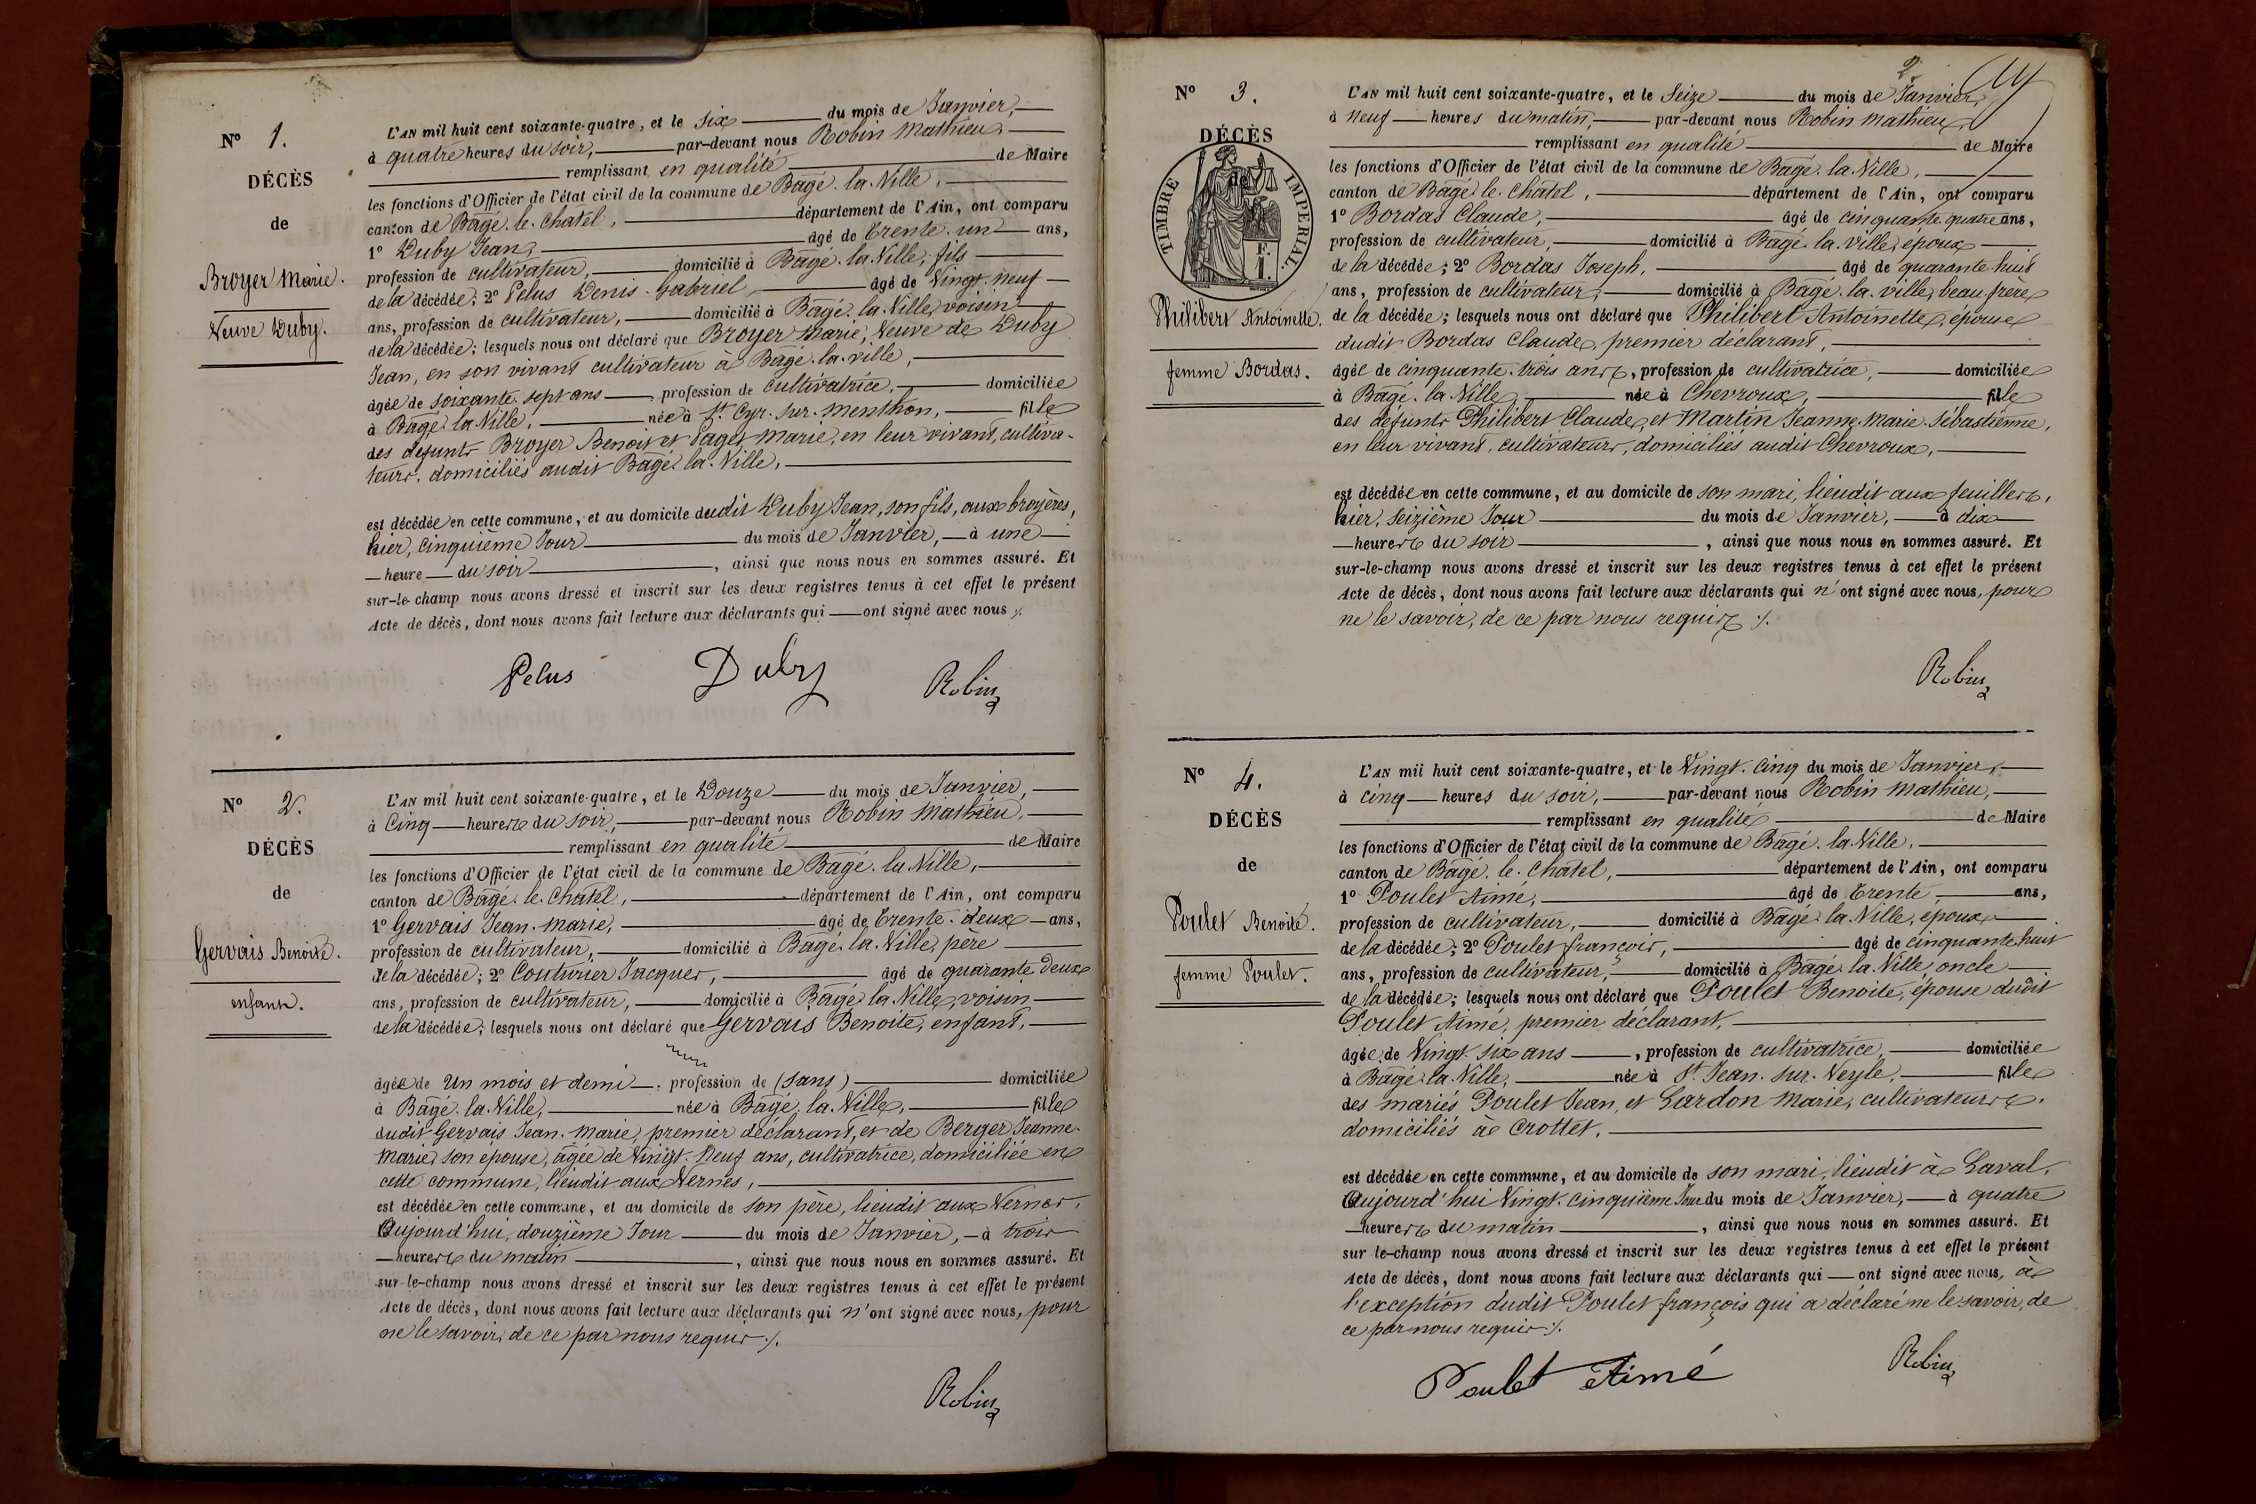 Nº 1.
DÉCÈS
de
Broyer Marie.
Veuve Duby.
L'AN mil huit cent soixante-quatre, et le Six du mois de Janvier,
à quatre heures du soir, par-devant nous Robin Mathieu,
remplissant en qualité de Maire
les fonctions d'Officier de l'état civil de la commune de Bâgé-la-Ville,
canton de Bâgé-le-Châtel, département de l'Ain, ont comparu
1º Duby Jean, âgé de Trente-un ans,
profession de cultivateur, domicilié à Bâgé-la-Ville, fils
de la décédée; 2º Pelus Denis-Gabriel, âgé de Vingt-neuf
ans, profession de cultivateur, domicilié à Bâgé-la-Ville, voisin
de la décédée; lesquels nous ont déclaré que Broyer Marie, Veuve de Duby
Jean, en son vivant cultivateur à Bâgé-la-ville,
âgée de soixante-sept ans, profession de cultivatrice, domiciliée
à Bâgé-la-Ville, née à St Cyr-sur-Menthon, fille
des défunts Broyer Benoit et Pagès Marie, en leur vivant, cultiva-
teurs, domiciliés audit Bâgé-la-Ville,
est décédée en cette commune, et au domicile dudit Duby Jean, son fils, aux broyères,
hier, cinquième Jour du mois de Janvier, à une
heure du soir, ainsi que nous nous en sommes assuré. Et
sur-le-champ nous avons dressé et inscrit sur les deux registres tenus à cet effet le présent
Acte de décès, dont nous avons fait lecture aux déclarants qui ont signé avec nous ./.
Pelus Duby Robin
Nº 2.
DÉCÈS
de
Gervais Benoite.
enfant.
L'AN mil huit cent soixante-quatre, et le Douze du mois de Janvier,
à Cinq heures du soir, par-devant nous Robin Mathieu,
remplissant en qualité de Maire
les fonctions d'Officier de l'état civil de la commune de Bâgé-la-Ville,
canton de Bâgé-le-Châtel, département de l'Ain, ont comparu
1º Gervais Jean-Marie, âgé de Trente-deux ans,
profession de cultivateur, domicilié à Bâgé-la-Ville, père
de la décédée; 2º Couturier Jacques, âgé de quarante-Deux
ans, profession de cultivateur, domicilié à Bâgé-la-Ville, voisin
de la décédée; lesquels nous ont déclaré que Gervais Benoite, enfant,
âgée de Un mois et demi, profession de (sans) domiciliée
à Bâgé-la-Ville, née à Bâgé-la-Ville, fille
dudit Gervais Jean-Marie, premier déclarant, et de Berger Jeanne-
Marie, son épouse, âgée de Vingt-Neuf ans, cultivatrice, domiciliée en
cette commune, lieudit aux Vernes,
est décédée en cette commune, et au domicile de son père, lieudit aux Vernes,
Aujourd'hui, douzième Jour du mois de Janvier, à trois
heures du matin, ainsi que nous nous en sommes assuré. Et
sur-le-champ nous avons dressé et inscrit sur les deux registres tenus à cet effet le présent
Acte de décès, dont nous avons fait lecture aux déclarants qui n'ont signé avec nous, pour
ne le savoir, de ce par nous requis ./.
Robin
2
Nº 3.
DÉCÈS
de
TIMBRE IMPÉRIAL.
F.
1.
Philibert Antoinette.
femme Bordas.
L'AN mil huit cent soixante-quatre, et le Seize du mois de Janvier,
à Neuf heures du matin, par-devant nous Robin Mathieu,
remplissant en qualité de Maire
les fonctions d'Officier de l'état civil de la commune de Bâgé-la-Ville,
canton de Bâgé-le-Châtel, département de l'Ain, ont comparu
1º Bordas Claude, âgé de cinquante-quatre ans,
profession de cultivateur, domicilié à Bâgé-la-ville, époux
de la décédée; 2º Bordas Joseph, âgé de quarante-huit
ans, profession de cultivateur, domicilié à Bâgé-la-ville, beau-frère
de la décédée; lesquels nous ont déclaré que Philibert Antoinette, épouse
dudit Bordas Claude, premier déclarant,
âgée de cinquante-trois ans, profession de cultivatrice, domiciliée
à Bâgé-la-Ville, née à Chevroux, fille
des défunts Philibert Claude, et Martin Jeanne-Marie-Sébastienne,
en leur vivant, cultivateurs, domiciliés audit Chevroux,
est décédée en cette commune, et au domicile de son mari, lieudit aux feuilles,
hier, seizième Jour du mois de Janvier, à dix
heures du soir, ainsi que nous nous en sommes assuré. Et
sur-le-champ nous avons dressé et inscrit sur les deux registres tenus à cet effet le présent
Acte de décès, dont nous avons fait lecture aux déclarants qui n'ont signé avec nous, pour
ne le savoir, de ce par nous requis ./.
Robin
Nº 4.
DÉCÈS
de
Poulet Benoite.
femme Poulet.
L'AN mil huit cent soixante-quatre, et le Vingt-Cinq du mois de Janvier,
à Cinq heures du soir, par-devant nous Robin Mathieu,
remplissant en qualité de Maire
les fonctions d'Officier de l'état civil de la commune de Bâgé-la-Ville,
canton de Bâgé-le-Châtel, département de l'Ain, ont comparu
1º Poulet Aimé, âgé de Trente, ans,
profession de cultivateur, domicilié à Bâgé-la-Ville, époux
de la décédée; 2º Poulet françois, âgé de cinquante-huit
ans, profession de cultivateur, domicilié à Bâgé-la-Ville, oncle
de la décédée; lesquels nous ont déclaré que Poulet Benoite, épouse dudit
Poulet Aimé, premier déclarant,
âgée de Vingt-six ans, profession de cultivatrice, domiciliée
à Bâgé-la-Ville, née à St Jean-sur-Veyle, fille
des mariés Poulet Jean, et Lardon Marie, cultivateurs,
domiciliés à Crottet,
est décédée en cette commune, et au domicile de son mari, lieudit à Laval,
Aujourd'hui Vingt-cinquième Jour du mois de Janvier, à quatre
heures du matin, ainsi que nous nous en sommes assuré. Et
sur-le-champ nous avons dressé et inscrit sur les deux registres tenus à cet effet le présent
Acte de décès, dont nous avons fait lecture aux déclarants qui ont signé avec nous, à
l'exception dudit Poulet françois qui a déclaré ne le savoir, de
ce par nous requis ./.
Poulet Aimé Robin